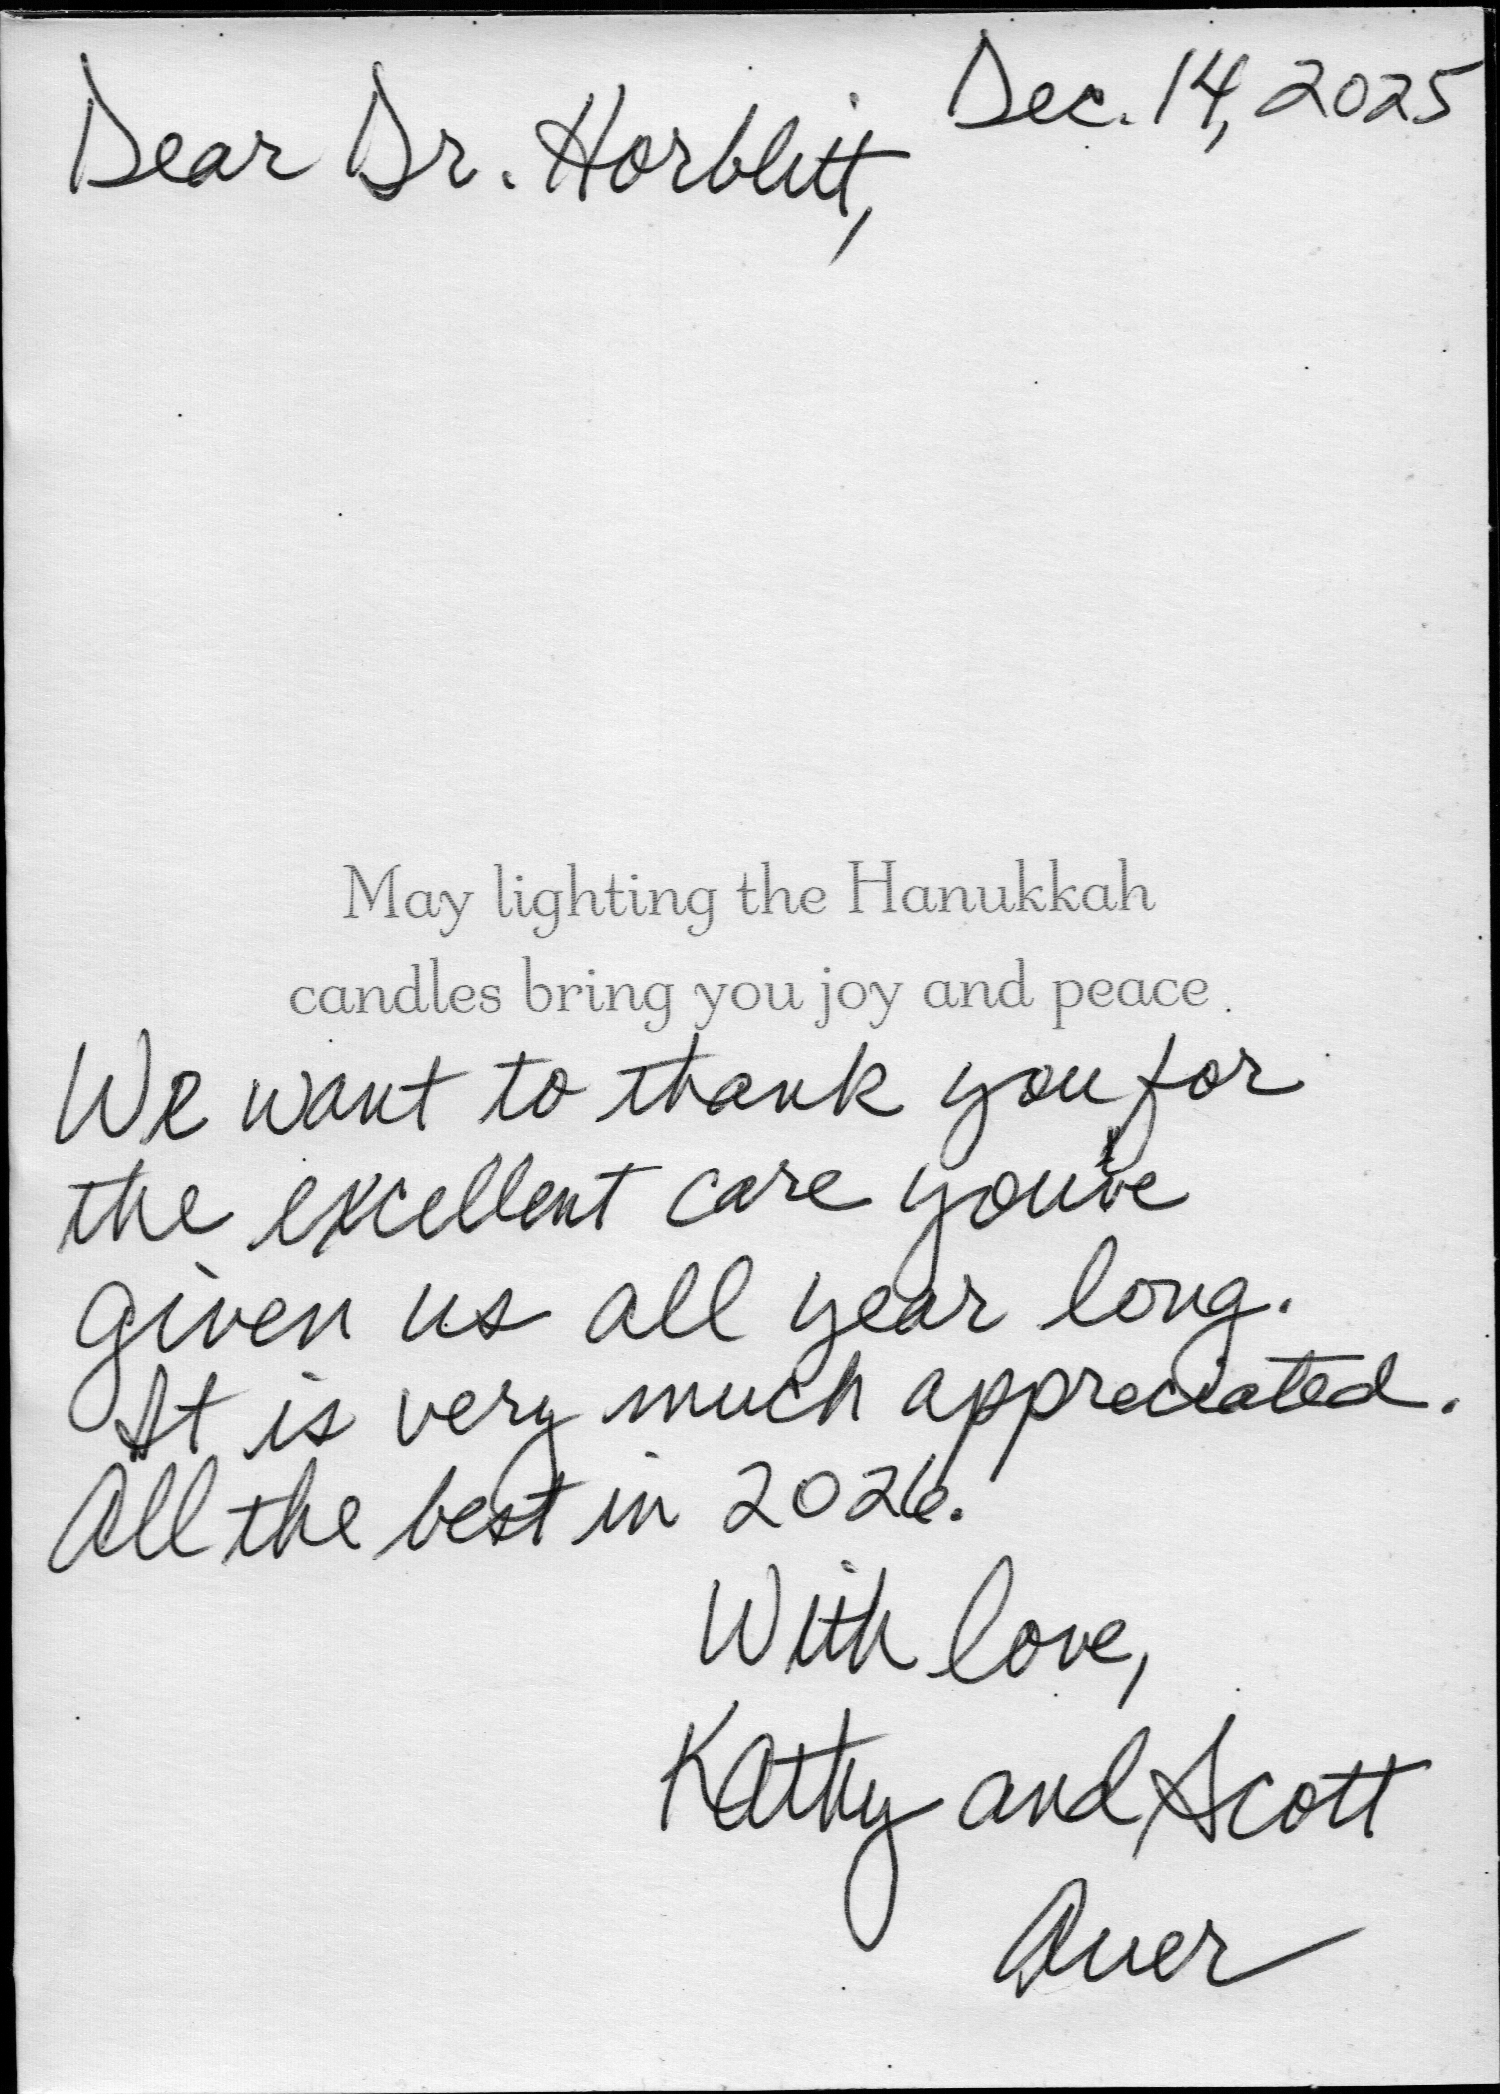 Dec. 14, 2025
Dear Dr. Horblitt,
May lighting the Hanukkah
candles bring you joy and peace.
We want to thank you for
the excellent care you've
given us all year long.
It is very much appreciated.
All the best in 2026.
With love,
Kathy and Scott
Auer